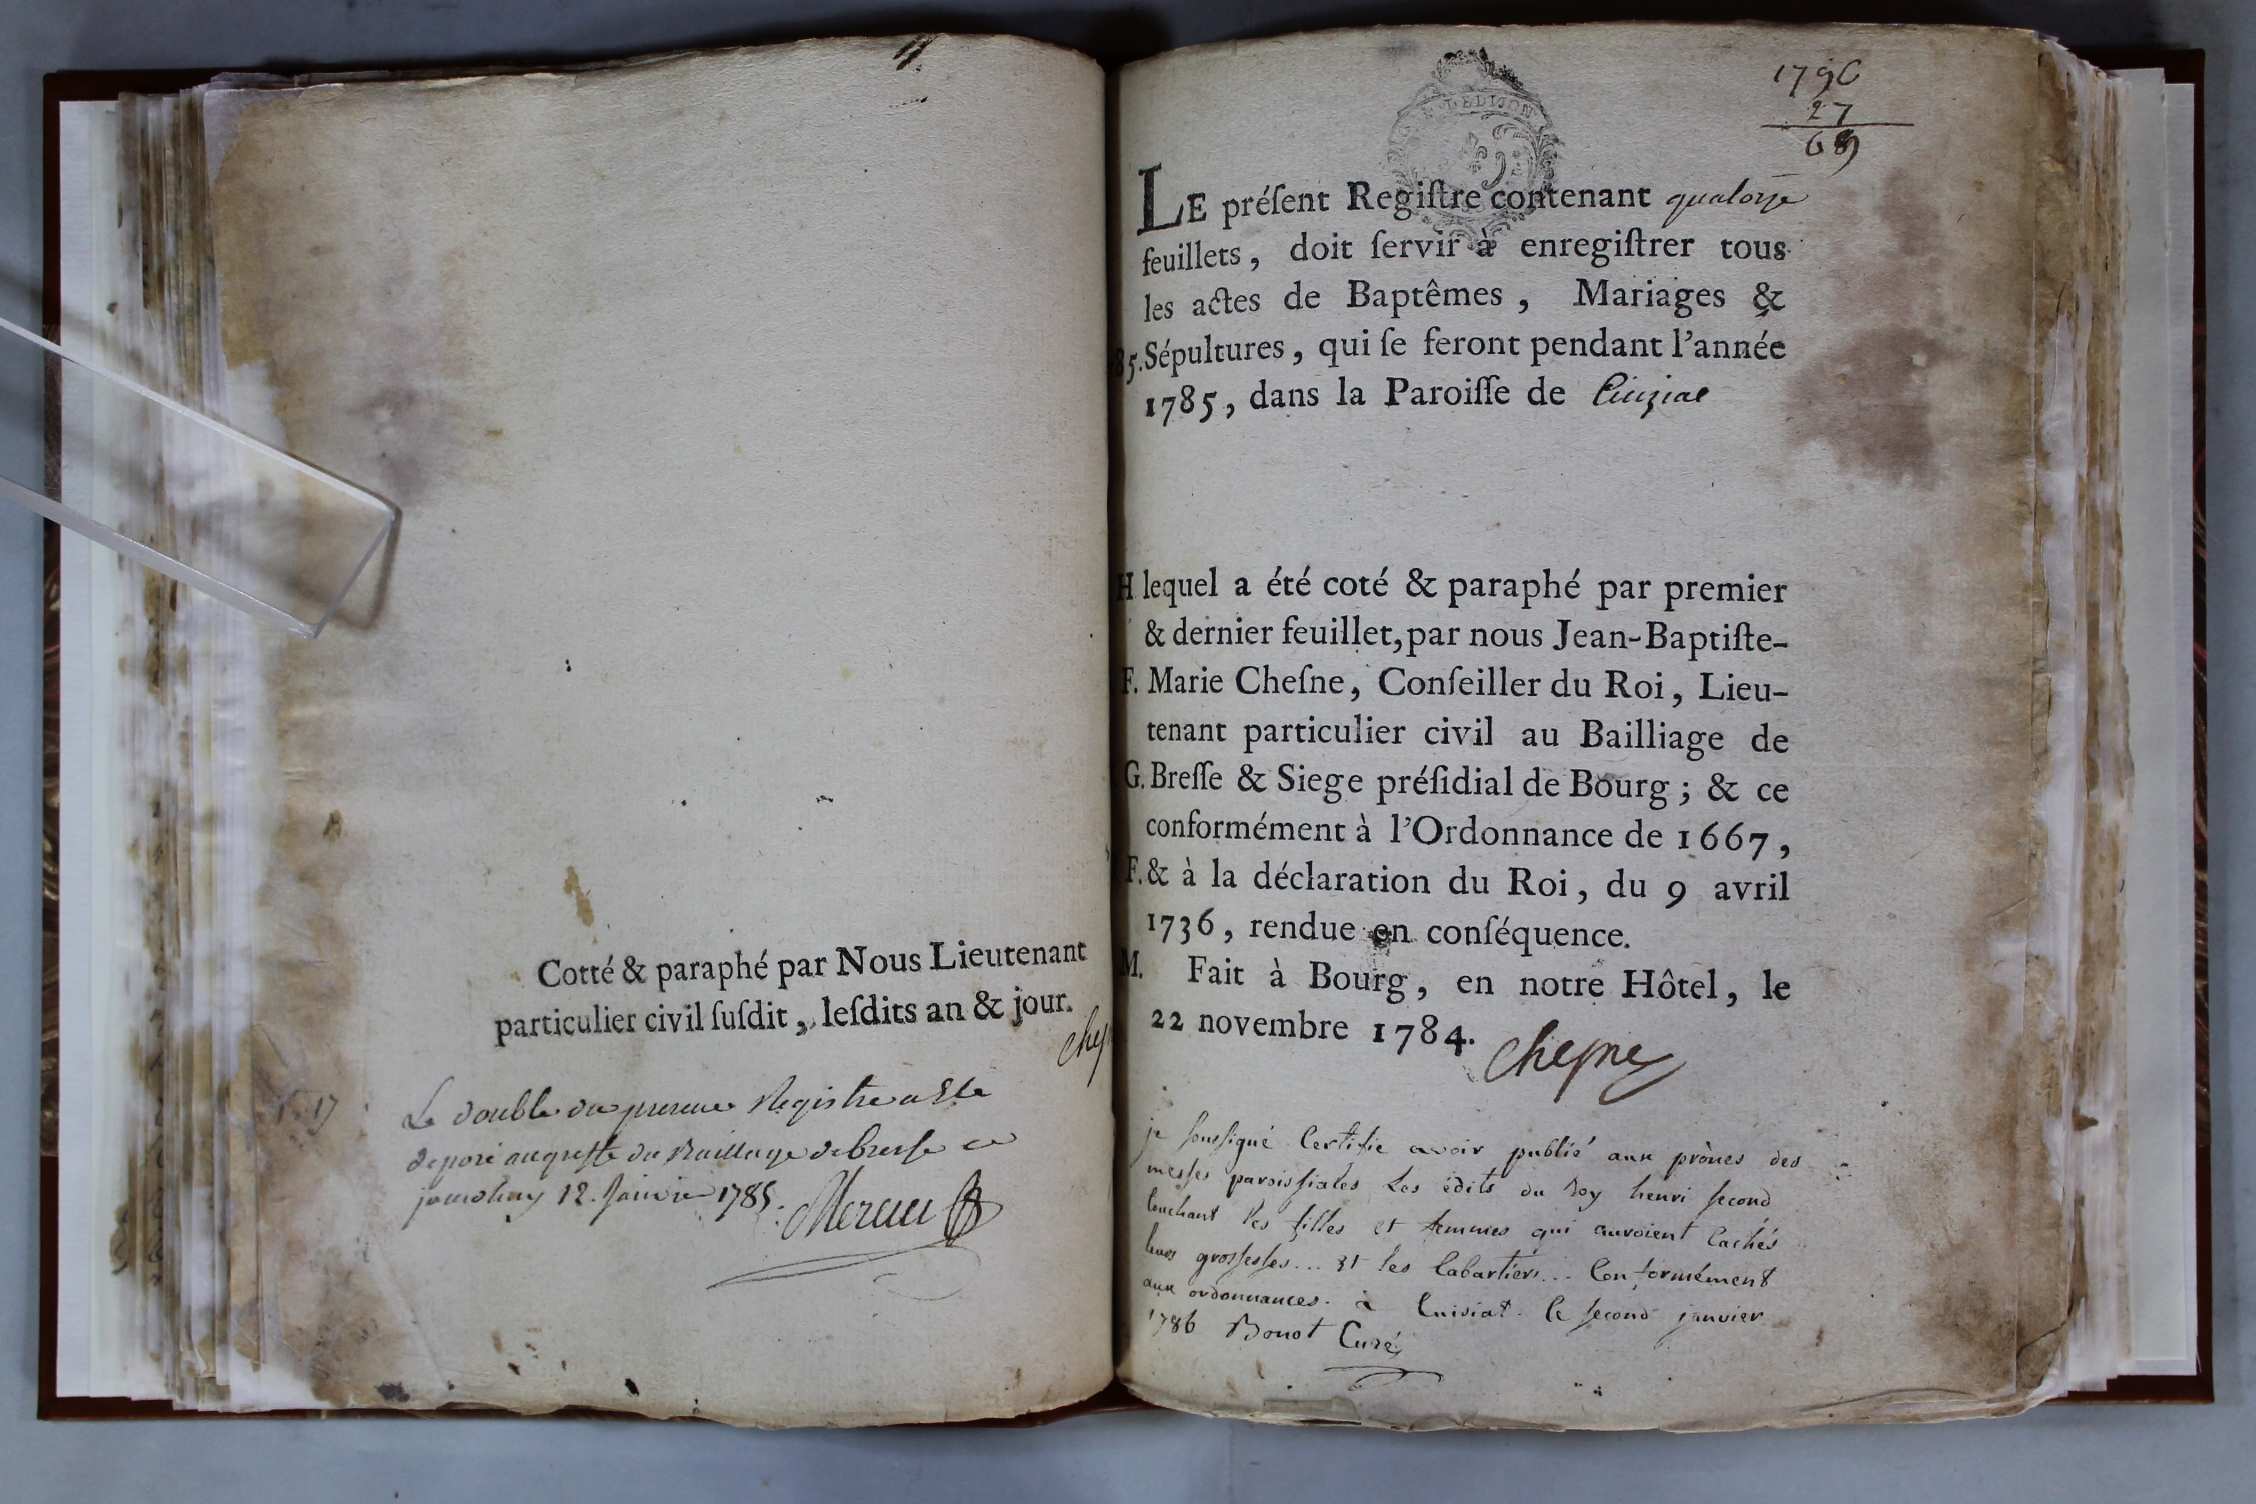 Cotté & paraphé par Nous Lieutenant
particulier civil ſuſdit, leſdits an & jour.
chesn
Le double du present Registre a Ete
deposé au greffe du Bailliage de bresse ce
jourdhuy 12. Janvier 1785.
GEN. DE DIJON
1796
27
69
LE préſent Regiſtre contenant quatorze
feuillets, doit ſervir à enregiſtrer tous
les actes de Baptêmes, Mariages &
85. Sépultures, qui ſe feront pendant l'année
1785, dans la Paroiſſe de Cuiziat
H lequel a été coté & paraphé par premier
& dernier feuillet, par nous Jean-Baptiſte-
F. Marie Cheſne, Conſeiller du Roi, Lieu-
tenant particulier civil au Bailliage de
G. Breſſe & Siege préſidial de Bourg; & ce
conformément à l'Ordonnance de 1667,
F. & à la déclaration du Roi, du 9 avril
1736, rendue en conſéquence.
M. Fait à Bourg, en notre Hôtel, le
22 novembre 1784. chesne
je soussigné Certifie avoir publié aux prônes des
messes paroissiales Les édits du Roy henri second
touchant les filles et femmes qui auroient Cachés
leurs grossesses... Et les Cabartiers... Conformément
aux ordonnances. à Cuisiat. le second janvier
1786 Bonot Curé